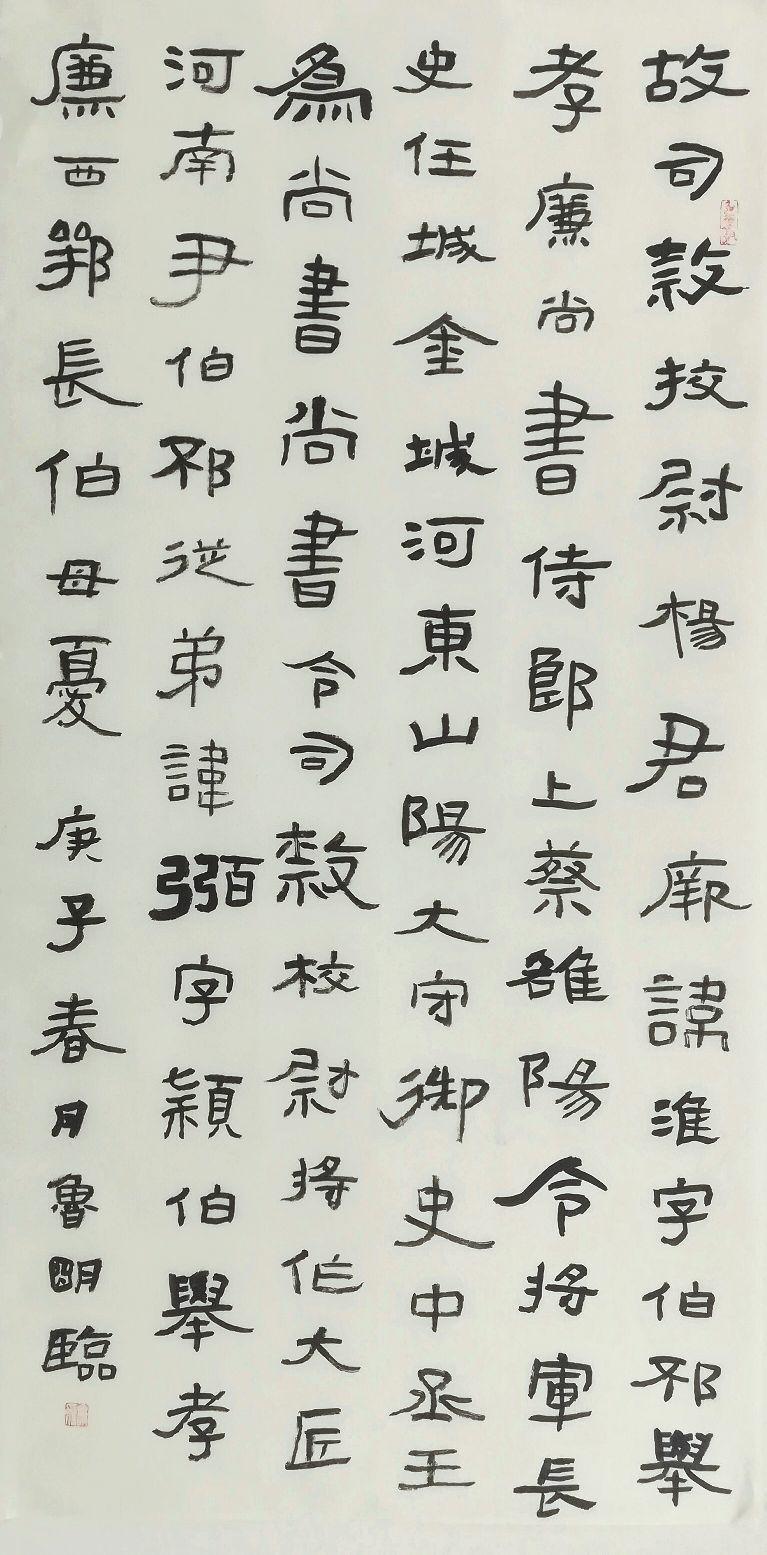 故司隸挍尉楊君厥諱淮字伯邳舉
孝廉尚書侍郎上蔡雒陽令將軍長
史任城金城河東山陽大守御史中丞王
為尚書尚書令司隸校尉將作大匠
河南尹伯邳從弟諱弼字穎伯舉孝
廉西鄂長伯母憂 庚子春月魯明臨